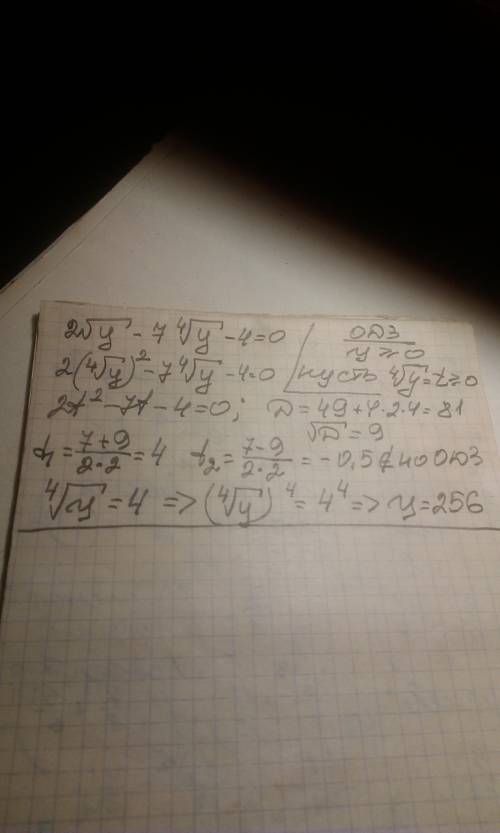 2√y - 7 ⁴√y - 4 = 0 / ОДЗ y ≥ 0
2(⁴√y)² - 7 ⁴√y - 4 = 0 пусть ⁴√y = t ≥ 0
2t² - 7t - 4 = 0; D = 49 + 4·2·4 = 81
√D = 9
t₁ = (7+9)/(2·2) = 4 t₂ = (7-9)/(2·2) = -0,5 ∉ по ОДЗ
⁴√y = 4 => (⁴√y)⁴ = 4⁴ => y = 256